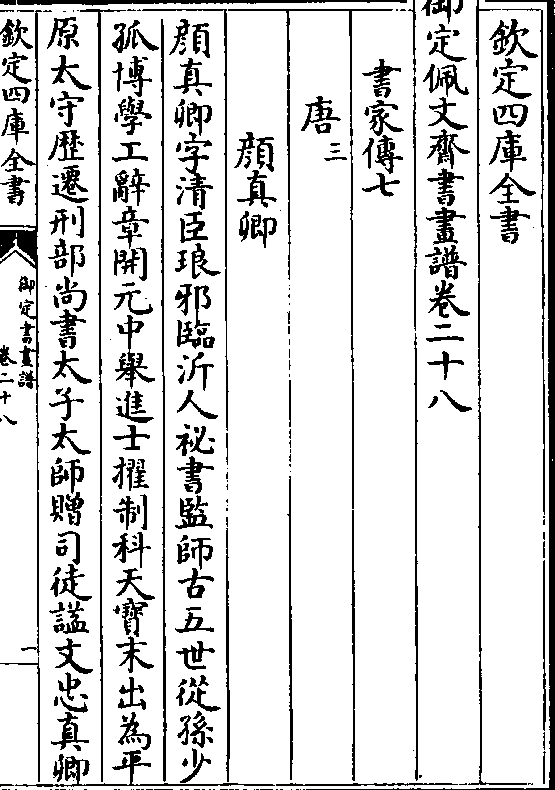 欽定四庫全書
御定佩文齋書畫譜卷二十八
書家傳七
唐三
顔真卿
顔真卿字清臣琅邪臨沂人祕書監師古五世從孫少
孤博學工辭章開元中舉進士擢制科天寶末出為平
原太守歴遷刑部尚書太子太師贈司徒諡文忠真卿
欽定四庫全書
御定書畫譜
卷二十八
一